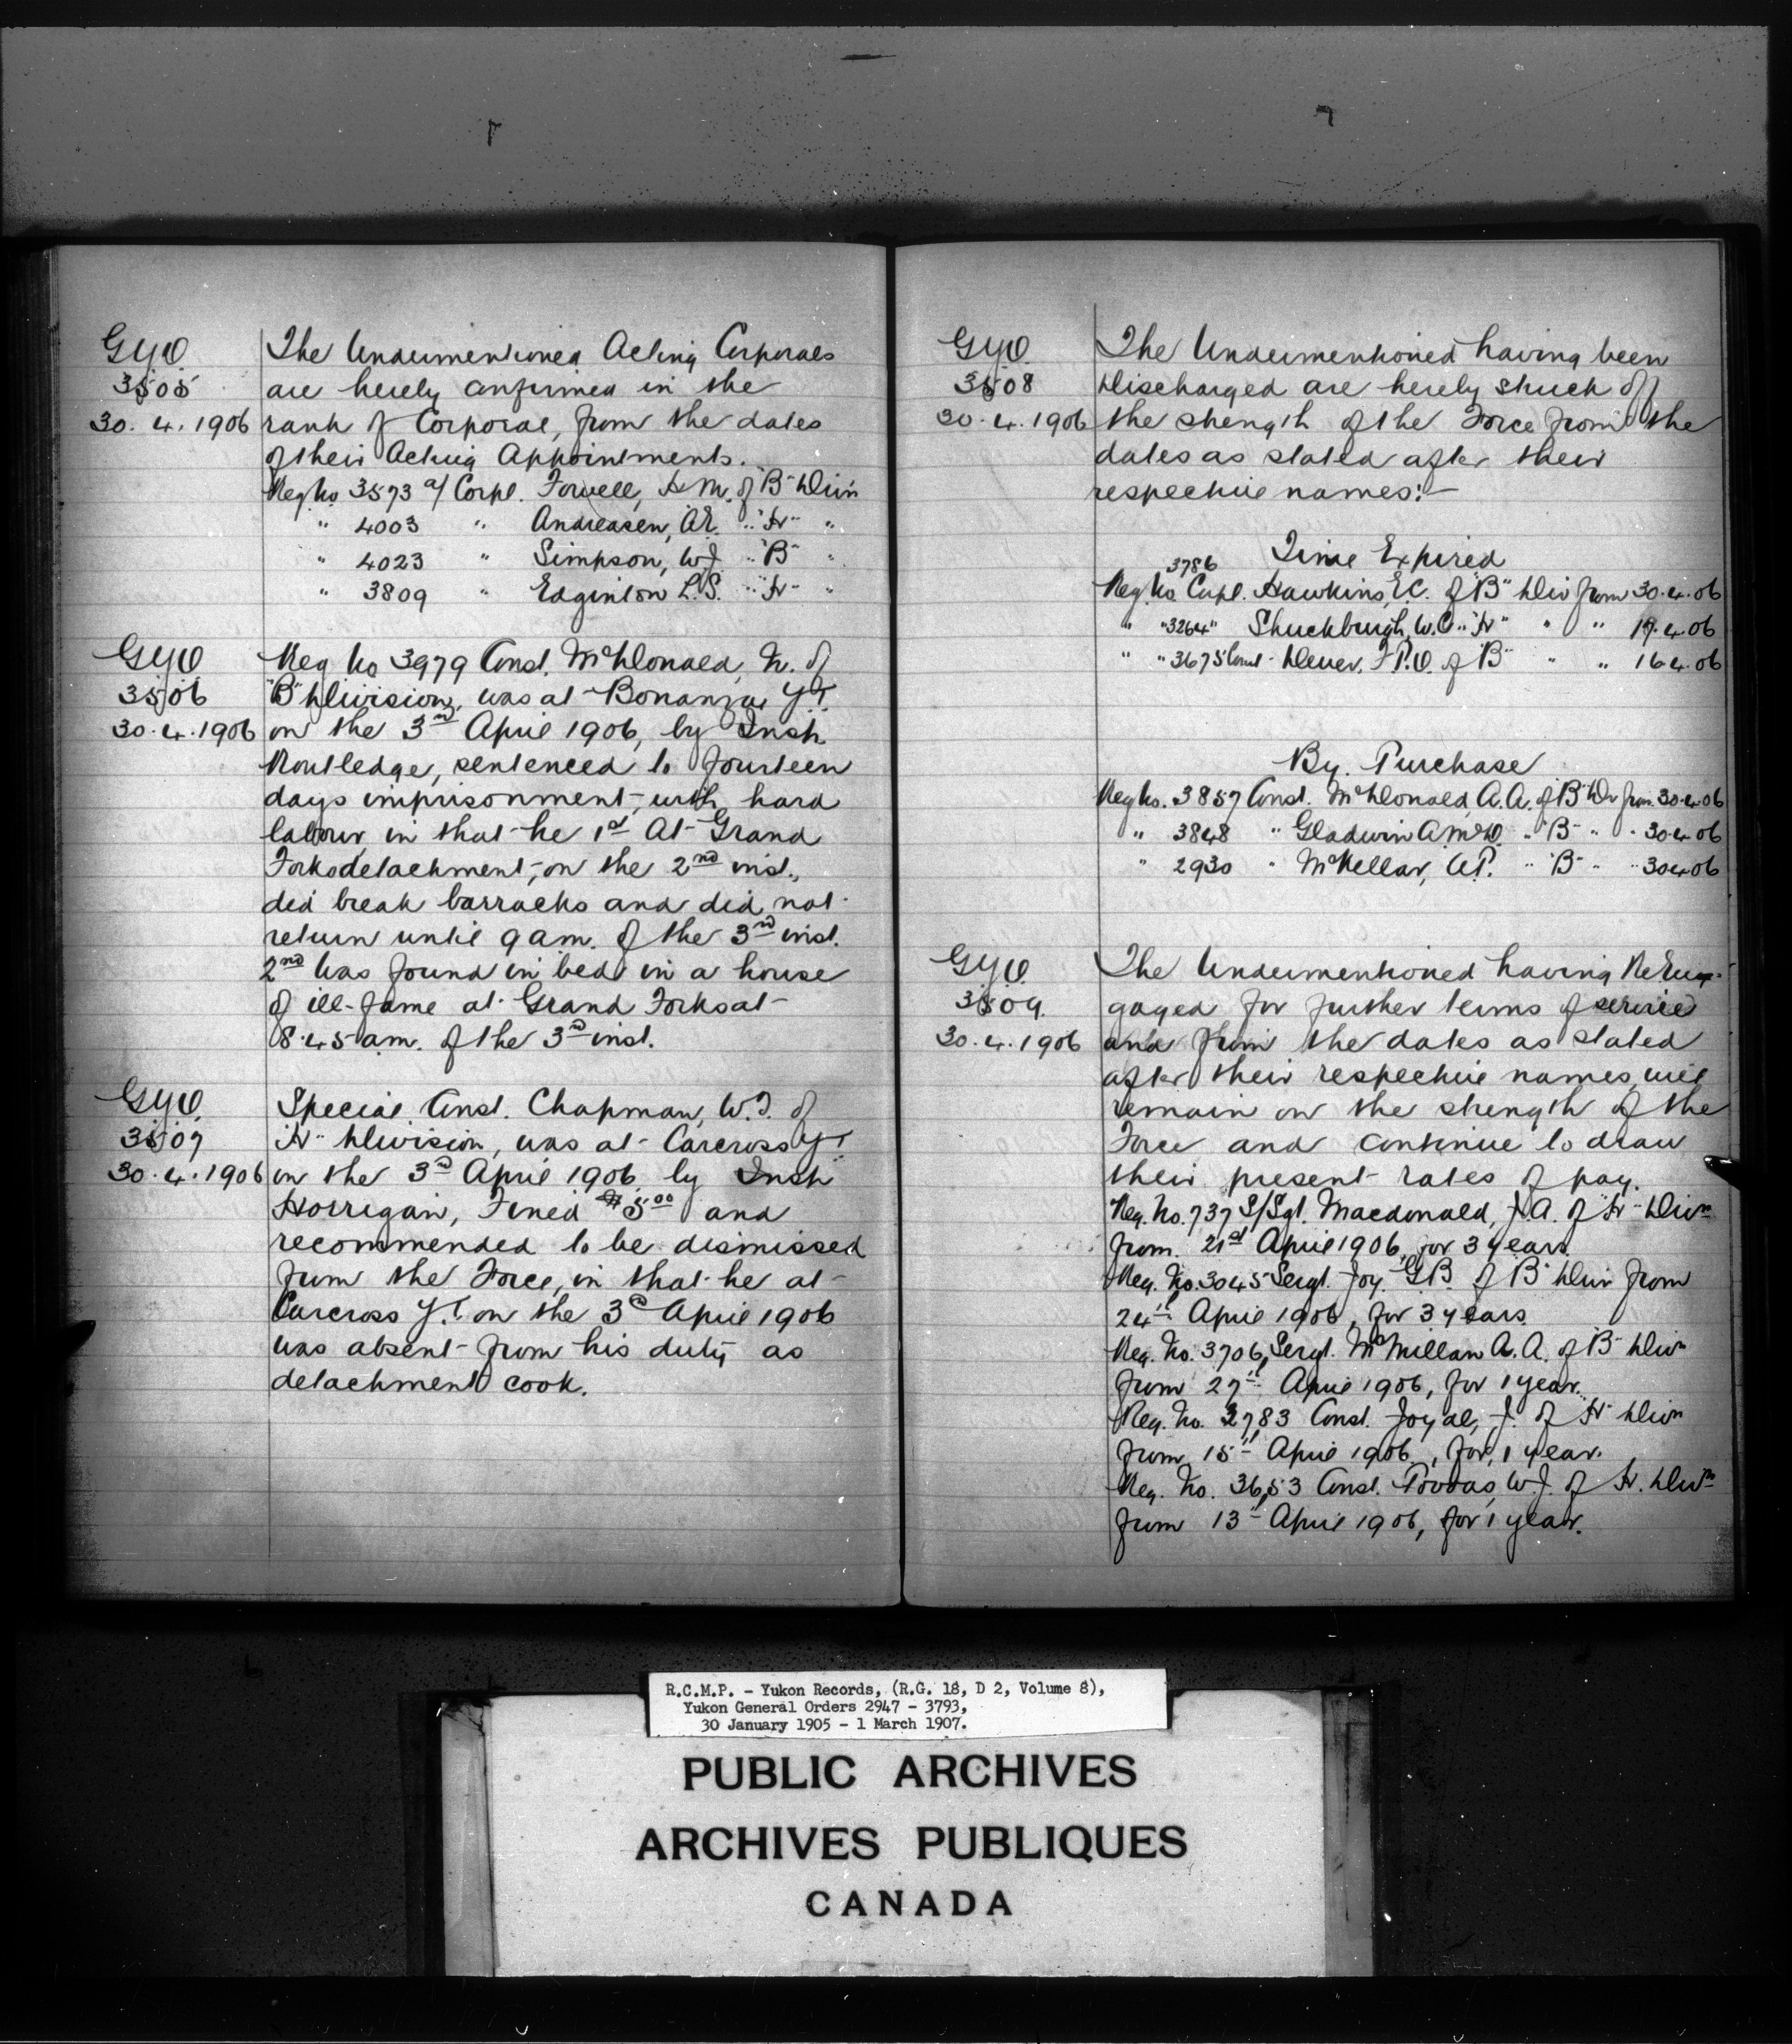 G.Y.O.
3505
30. 4. 1906
The Undermentioned Acting Corporals
are hereby confirmed in the
rank of Corporal, from the dates
of their Acting Appointments.
Reg No 3573 a/ Corpl. Fowell, H. M. of "B" Divn
" 4003 " Andreasen, A.E. " "H" "
" 4023 " Simpson, W.J. " "B" "
" 3809 " Edginton L.S. " "H" "
G.Y.O.
3506
30. 4. 1906
Reg No 3979 Const. McDonald, N. of
"B" Division, was at Bonanza Y.T.
on the 3rd April 1906, by Insp
Routledge, sentenced to fourteen
days imprisonment, with hard
labour, in that he 1st At Grand
Forks detachment, on the 2nd inst.,
did break barracks and did not
return until 9 am. of the 3rd inst.
2nd Was found in bed in a house
of ill-fame at Grand Forks at
8.45 am. of the 3rd inst.
G.Y.O.
3507
30. 4. 1906
Special Const. Chapman, W.T. of
"H" Division, was at Carcross Y.T.
on the 3rd April 1906 by Insp
Horrigan, Fined $5.00 and
recommended to be dismissed
from the Force, in that he at
Carcross Y.T. on the 3rd April 1906
was absent from his duty as
detachment cook.
G.Y.O.
3508
30. 4. 1906
The Undermentioned having been
Discharged are hereby struck off
the strength of the Force from the
dates as stated after their
respective names:-
Time Expired
3786
Reg. No Corpl. Hawkins, E.C. of "B" Div from 30.4.06
" " 3264 " Shuckburgh, W.C. " "H" " " 19.4.06
" " 3675 Const. Dever, F.P.O. of "B" " " 16.4.06
By. Purchase
Reg No. 3857 Const. McDonald, A.A. of "B" Div from 30.4.06
" 3848 " Gladwin A.McD. " "B" " " 30.4.06
" 2930 " McKellar, A.P. " "B" " " 30.4.06
G.Y.O.
3509.
30. 4. 1906
The Undermentioned having Re Eng-
gaged for further terms of service
and from the dates as stated
after their respective names, will
remain on the strength of the
Force and continue to draw
their present rates of pay.
Reg. No. 737 S/Sgt. Macdonald, J.A. of "H" Divn
from 21st April 1906, for 3 years.
Reg. No. 3045 Sergt. Joy. G.B. of "B" Divn from
24th April 1906, for 3 years.
Reg. No. 3706, Sergt. McMillan A.A. of "B" Divn
from 27th April 1906, for 1 year.
Reg. No. 2783 Const. Joyal, J. of "H" Divn
from 15th April 1906, for, 1 year.
Reg. No. 3653 Const. W.J. of H. Divn
from 13th April 1906, for 1 year.
R.C.M.P. - Yukon Records, (R.G. 18, D 2, Volume 8),
Yukon General Orders 2947 - 3793,
30 January 1905 - 1 March 1907.
PUBLIC ARCHIVES
ARCHIVES PUBLIQUES
CANADA